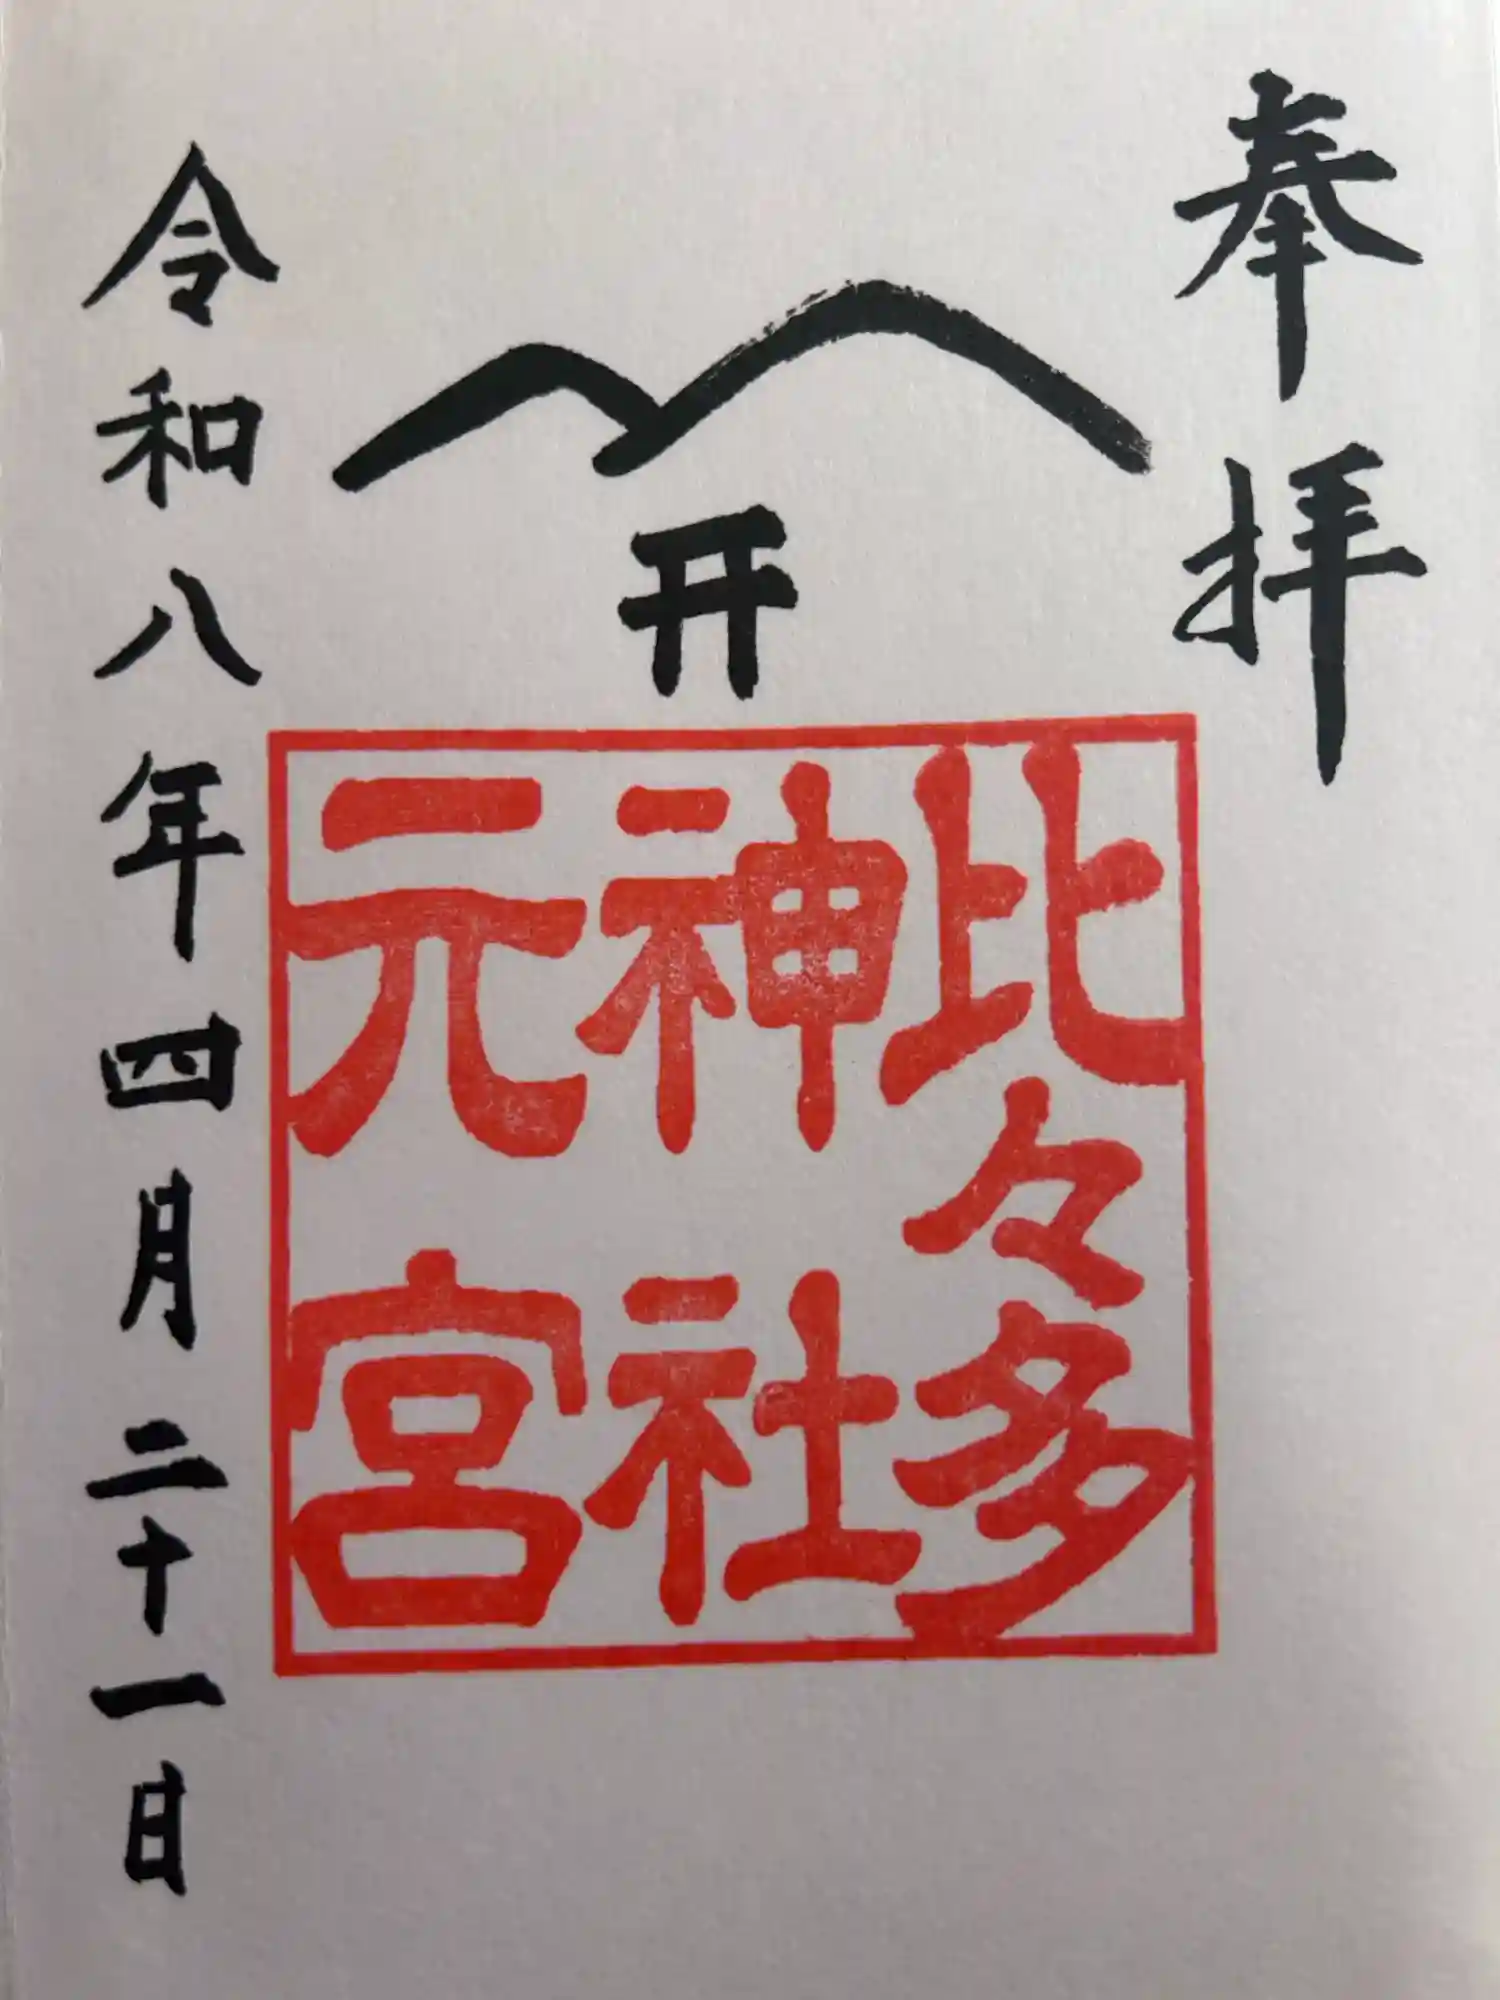 奉拝
比々多
神社
元宮
令和八年四月二十一日